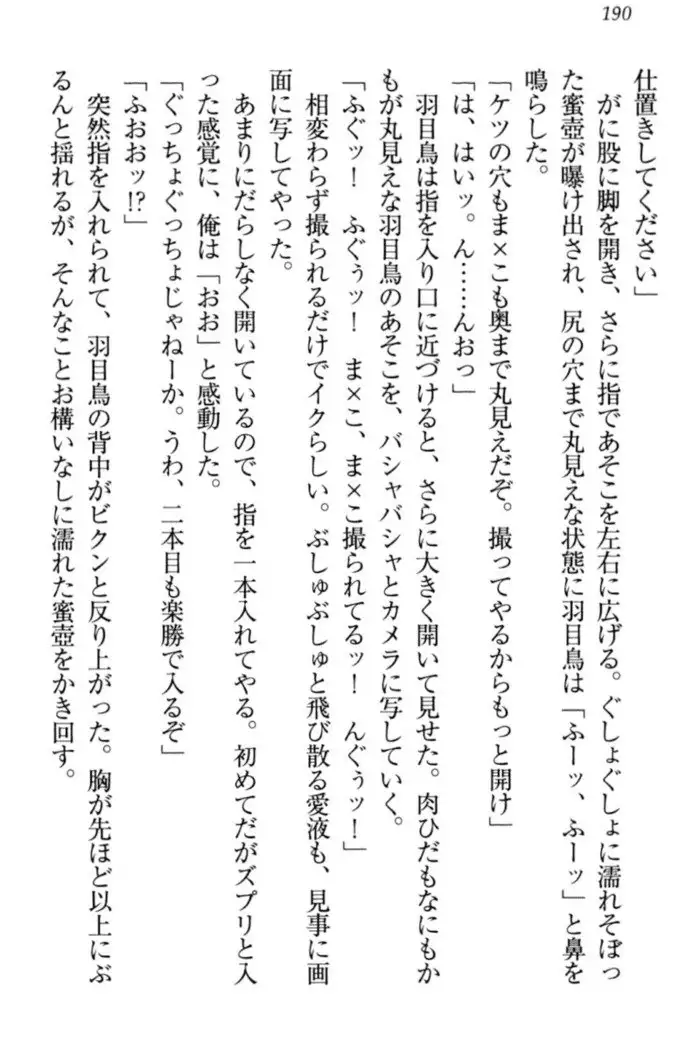 190
仕置きしてください」
　がに股に脚を開き、さらに指であそこを左右に広げる。ぐしょぐしょに濡れそぼっ
た蜜壺が曝け出され、尻の穴まで丸見えな状態に羽目鳥は「ふーッ、ふーッ」と鼻を
鳴らした。
「ケツの穴もま×こも奥まで丸見えだぞ。撮ってやるからもっと開け」
「は、はいッ。ん……んおっ」
　羽目鳥は指を入り口に近づけると、さらに大きく開いて見せた。肉ひだもなにもか
もが丸見えな羽目鳥のあそこを、バシャバシャとカメラに写していく。
「ふぐッ！　ふぐぅッ！　ま×こ、ま×こ撮られてるッ！　んぐぅッ！」
　相変わらず撮られるだけでイクらしい。ぶしゅぶしゅと飛び散る愛液も、見事に画
面に写してやった。
　あまりにだらしなく開いているので、指を一本入れてやる。初めてだがズプリと入
った感覚に、俺は「おお」と感動した。
「ぐっちょぐっちょじゃねーか。うわ、二本目も楽勝で入るぞ」
「ふおおッ!?」
　突然指を入れられて、羽目鳥の背中がビクンと反り上がった。胸が先ほど以上にぶ
るんと揺れるが、そんなことお構いなしに濡れた蜜壺をかき回す。